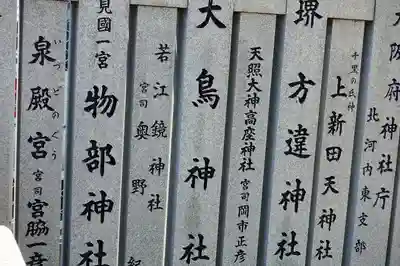 大阪府神社庁
北河内東支部
千里の氏神
上新田天神
堺
方違神社
天照大神高座神社
宮司岡市正彦
大鳥神社
若江鏡神社
宮司 奥野
見國一宮
物部神社
泉殿宮
いづどのぐう
宮司 宮脇一彦